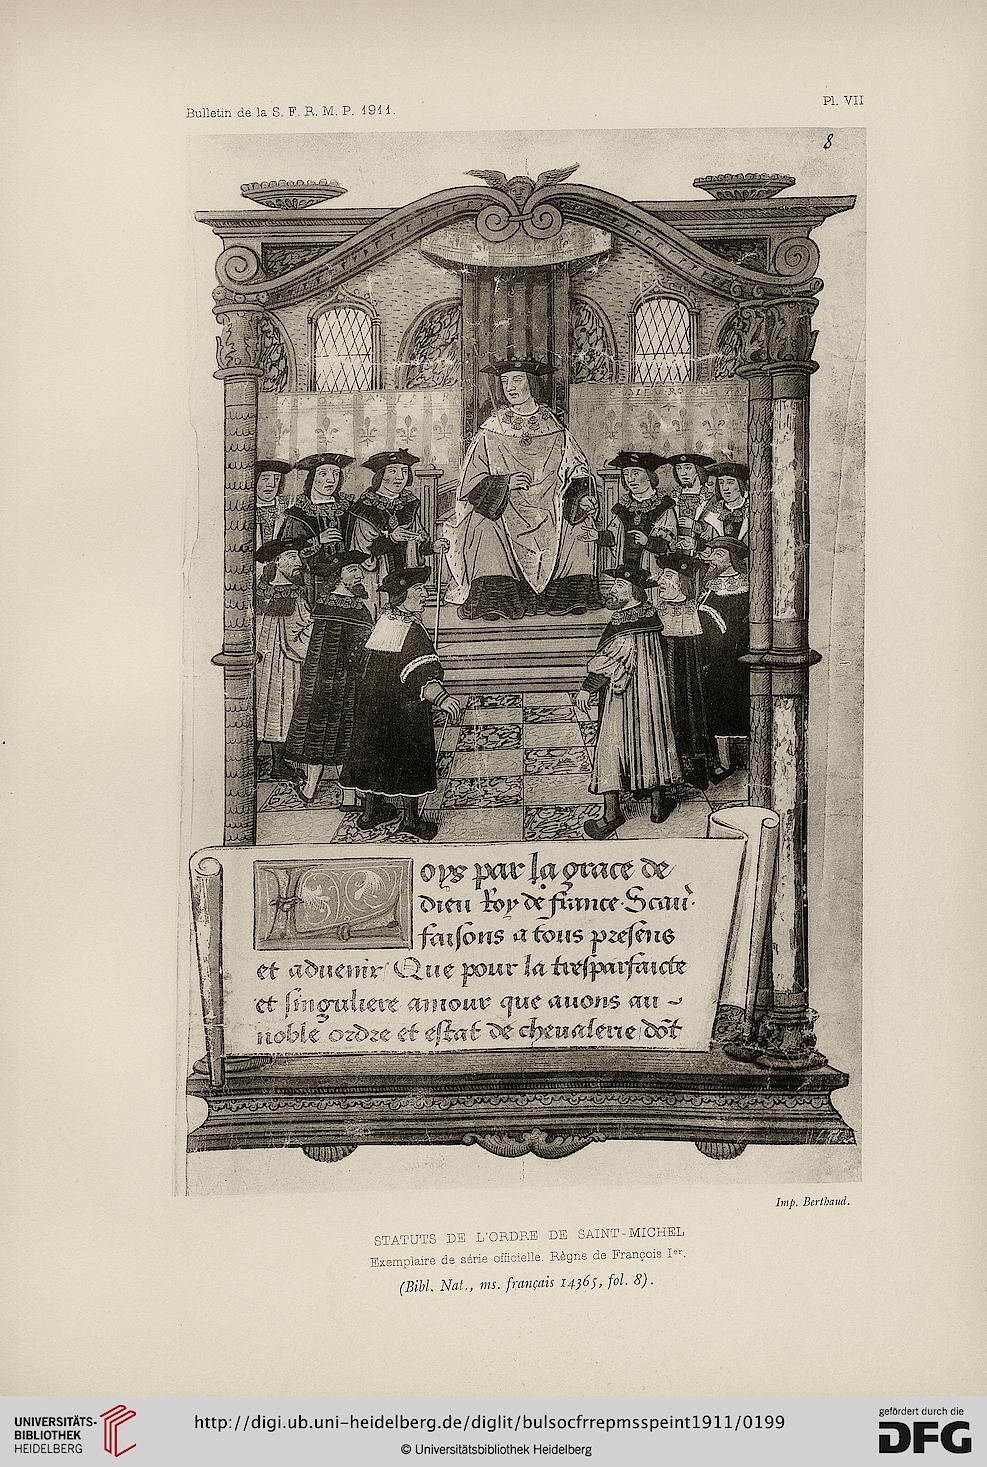 Bulletin de la S. F. R. M. P. 1911.
Pl. VII
8
Loys par la grace de
dieu Roy de france. Scaur.
faisons a tous presens
et aduenir Que pour la tresparfaicte
et singuliere amour que auons au
noble ordre et estat de cheualerie dōt
Imp. Berthaud.
STATUTS DE L'ORDRE DE SAINT-MICHEL
Exemplaire de série officielle. Règne de François Ier.
(Bibl. Nat., ms. français 14365, fol. 8).
UNIVERSITÄTS-
BIBLIOTHEK
HEIDELBERG
http://digi.ub.uni-heidelberg.de/diglit/bulsocfrrepmsspeint1911/0199
© Universitätsbibliothek Heidelberg
gefördert durch die
DFG